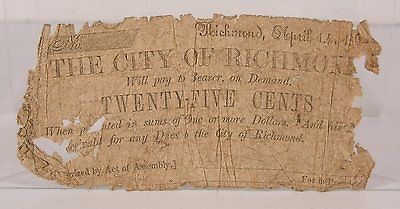 No.
Richmond, April 14, 186
THE CITY OF RICHMON
Will pay to Bearer, on Demand,
TWENTY-FIVE CENTS
When pr nted in sums of One or more Dollars. And
for any Dues to the City of Richmond.
rized by Act of Assembly.]
For the